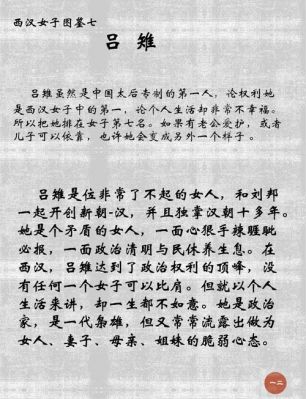 西汉女子图鉴七
吕雉
吕雉虽然是中国太后专制的第一人，论权利她
是西汉女子中的第一，论个人生活却非常不幸福。
所以把她排在女子第七名。如果有老公爱护，或者
儿子可以依靠，也许她会变成另外一个样子。
吕雉是位非常了不起的女人，和刘邦
一起开创新朝-汉，并且独掌汉朝十多年。
她是个矛盾的女人，一面心狠手辣睚眦
必报，一面政治清明与民休养生息。在
西汉，吕雉达到了政治权利的顶峰，没
有任何一个女子可以比肩。但就以个人
生活来讲，却一生都不如意。她是政治
家，是一代枭雄，但又常常流露出做为
女人、妻子、母亲、姐妹的脆弱心态。
一二